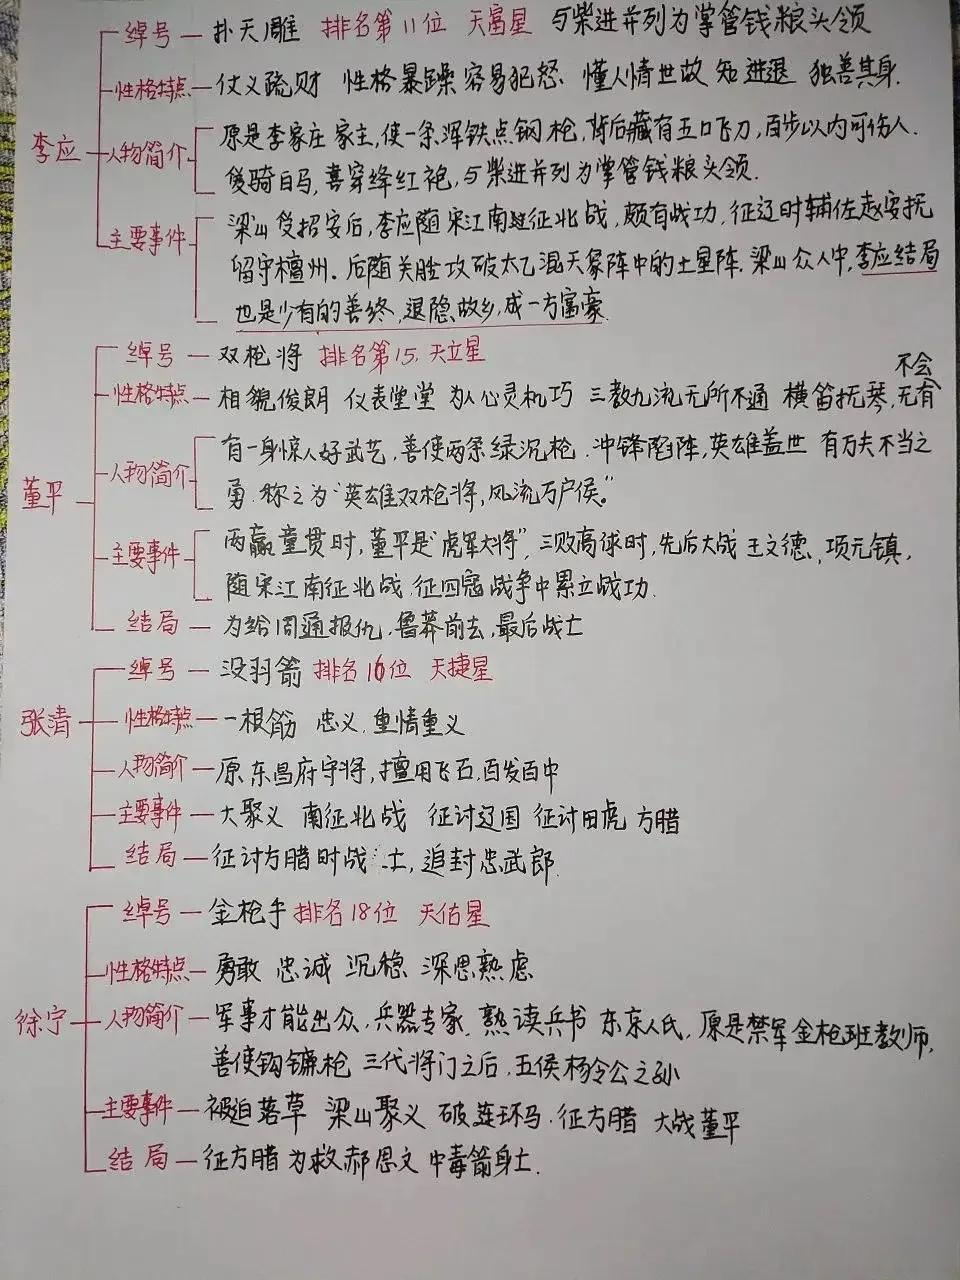 李应
绰号 — 扑天雕 排名第11位 天富星 与柴进并列为掌管钱粮头领
性格特点 — 仗义疏财 性格暴躁容易犯怒 懂人情世故 知进退 独善其身.
人物简介 原是李家庄家主,使一条浑铁点钢枪,背后藏有五口飞刀,百步以内可伤人.
骑白马,喜穿绛红袍,与柴进并列为掌管钱粮头领.
主要事件 梁山受招安后,李应随宋江南征北战,颇有战功,征辽时辅佐赵安抚
留守檀州.后随关胜攻破太乙混天象阵中的土星阵.梁山众人中,李应结局
也是少有的善终,退隐故乡,成一方富豪.
董平
绰号 — 双枪将 排名第15,天立星
不会
性格特点 — 相貌俊朗 仪表堂堂 为人心灵机巧 三教九流无所不通 横笛抚琴,无有
人物简介 有一身惊人好武艺,善使两条绿沉枪.冲锋陷阵,英雄盖世 有万夫不当之
勇.称之为“英雄双枪将,风流万户侯.”
主要事件 两赢童贯时,董平是“虎军大将”,三败高俅时,先后大战王文德、项元镇,
随宋江南征北战,征四寇战争中累立战功.
结局 — 为给周通报仇,鲁莽前去,最后战亡
张清
绰号 — 没羽箭 排名16位 天捷星
性格特点 — 一根筋 忠义.重情重义
人物简介 — 原东昌府守将,擅用飞石,百发百中
主要事件 — 大聚义 南征北战 征讨辽国 征讨田虎 方腊
结局 — 征讨方腊时战亡,追封忠武郎.
徐宁
绰号 — 金枪手 排名18位 天佑星
性格特点 — 勇敢 忠诚 沉稳 深思熟虑
人物简介 — 军事才能出众,兵器专家.熟读兵书 东京人氏,原是禁军金枪班教师,
善使钩镰枪 三代将门之后,五侯杨令公之孙
主要事件 — 被迫落草 梁山聚义 破连环马.征方腊 大战董平
结局 — 征方腊为救郝思文 中毒箭身亡.